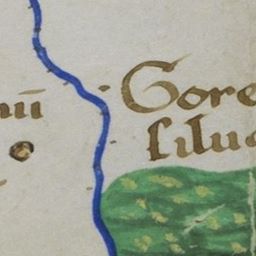 Gore
silua